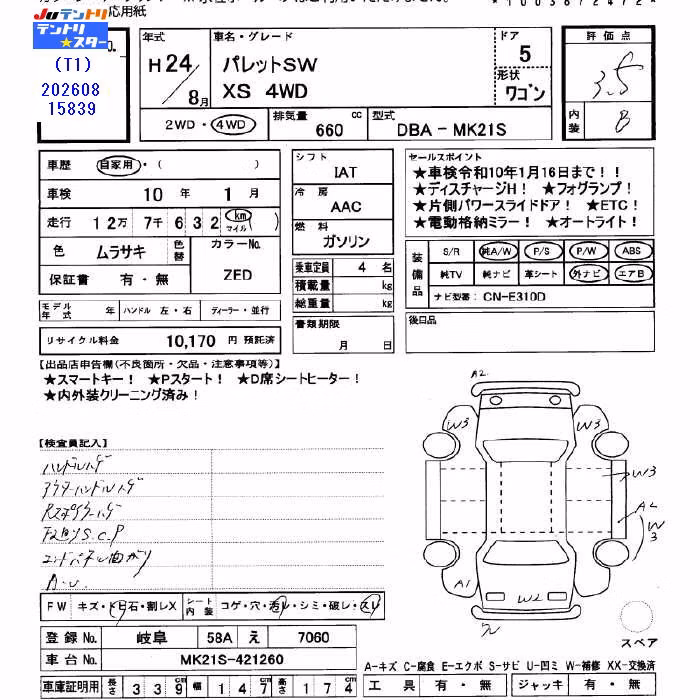 応用紙
Juテントリ
テントリ
★スター
(T1)
202608
15839
No.
年式
H24/8月
車名・グレード
パレットSW
XS 4WD
ドア
5
形状
ワゴン
評価点
3.5
内装
B
2WD・4WD
排気量 660 cc
型式 DBA-MK21S
車歴 自家用・( )
車検 10年 1月
走行 12万7千632 km マイル ( )
色 ムラサキ 色替
カラーNo. ZED
保証書 有・無
シフト IAT
冷房 AAC
燃料 ガソリン
乗車定員 4名
積載量 kg
総重量 kg
セールスポイント
★車検令和10年1月16日まで!!
★ディスチャージH! ★フォグランプ!
★片側パワースライドドア! ★ETC!
★電動格納ミラー! ★オートライト!
装備品
S/R 純A/W P/S P/W ABS
純TV 純ナビ 革シート 外ナビ エアB
ナビ型番: CN-E310D
モデル年式 年 ハンドル 左・右 ディーラー・並行
リサイクル料金 10,170 円 預託済
書類期限
月 日
後日品
【出品店申告欄(不良箇所・欠品・注意事項等)】
★スマートキー! ★Pスタート! ★D席シートヒーター!
★内外装クリーニング済み!
【検査員記入】
ハンドルハゲ
アウターハンドルハゲ
S.C.P
A2
W3
W3
W3
A2
W3
A1
W2
スペア
FW キズ・トビ石・割レX
シート内装 コゲ・穴・汚レ・シミ・破レ・スレ
登録No. 岐阜 58A え 7060
車台No. MK21S-421260
車庫証明用 長さ 339 幅 147 高さ 174
A-キズ C-腐食 E-エクボ S-サビ U-凹ミ W-補修 XX-交換済
工具 有・無 ジャッキ 有・無